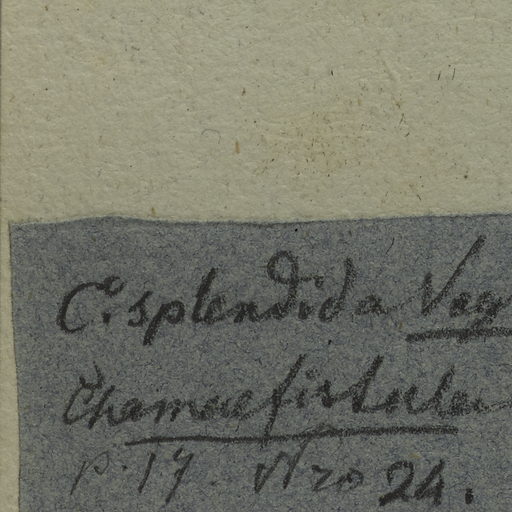 C. splendida Vog
Chamaefistula
p. 17. Nro 24.